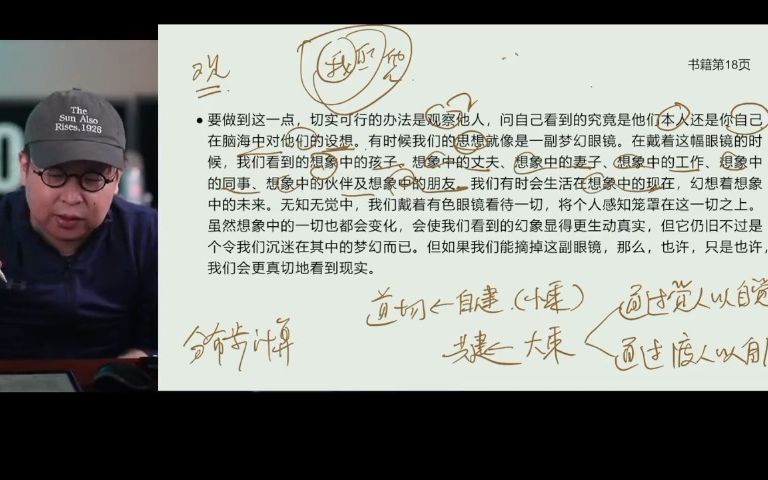 书籍第18页
观
我 的 觉
The
Sun Also
Rises.1926
• 要做到这一点，切实可行的办法是观察他人，问自己看到的究竟是他们本人还是你自己
在脑海中对他们的设想。有时候我们的思想就像是一副梦幻眼镜。在戴着这幅眼镜的时
候，我们看到的想象中的孩子、想象中的丈夫、想象中的妻子、想象中的工作、想象中
的同事、想象中的伙伴及想象中的朋友。我们有时会生活在想象中的现在，幻想着想象
中的未来。无知无觉中，我们戴着有色眼镜看待一切，将个人感知笼罩在这一切之上。
虽然想象中的一切也都会变化，会使我们看到的幻象显得更生动真实，但它仍旧不过是
个令我们沉迷在其中的梦幻而已。但如果我们能摘掉这副眼镜，那么，也许，只是也许，
我们会更真切地看到现实。
自建（小乘） 通过觉人以自觉
分布步计算 共建←大乘 通过度人以自